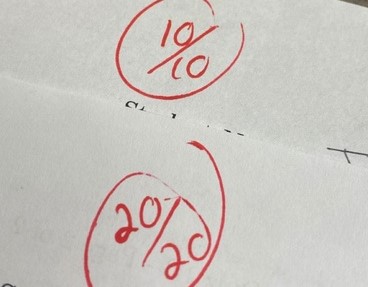 10/10
20/20